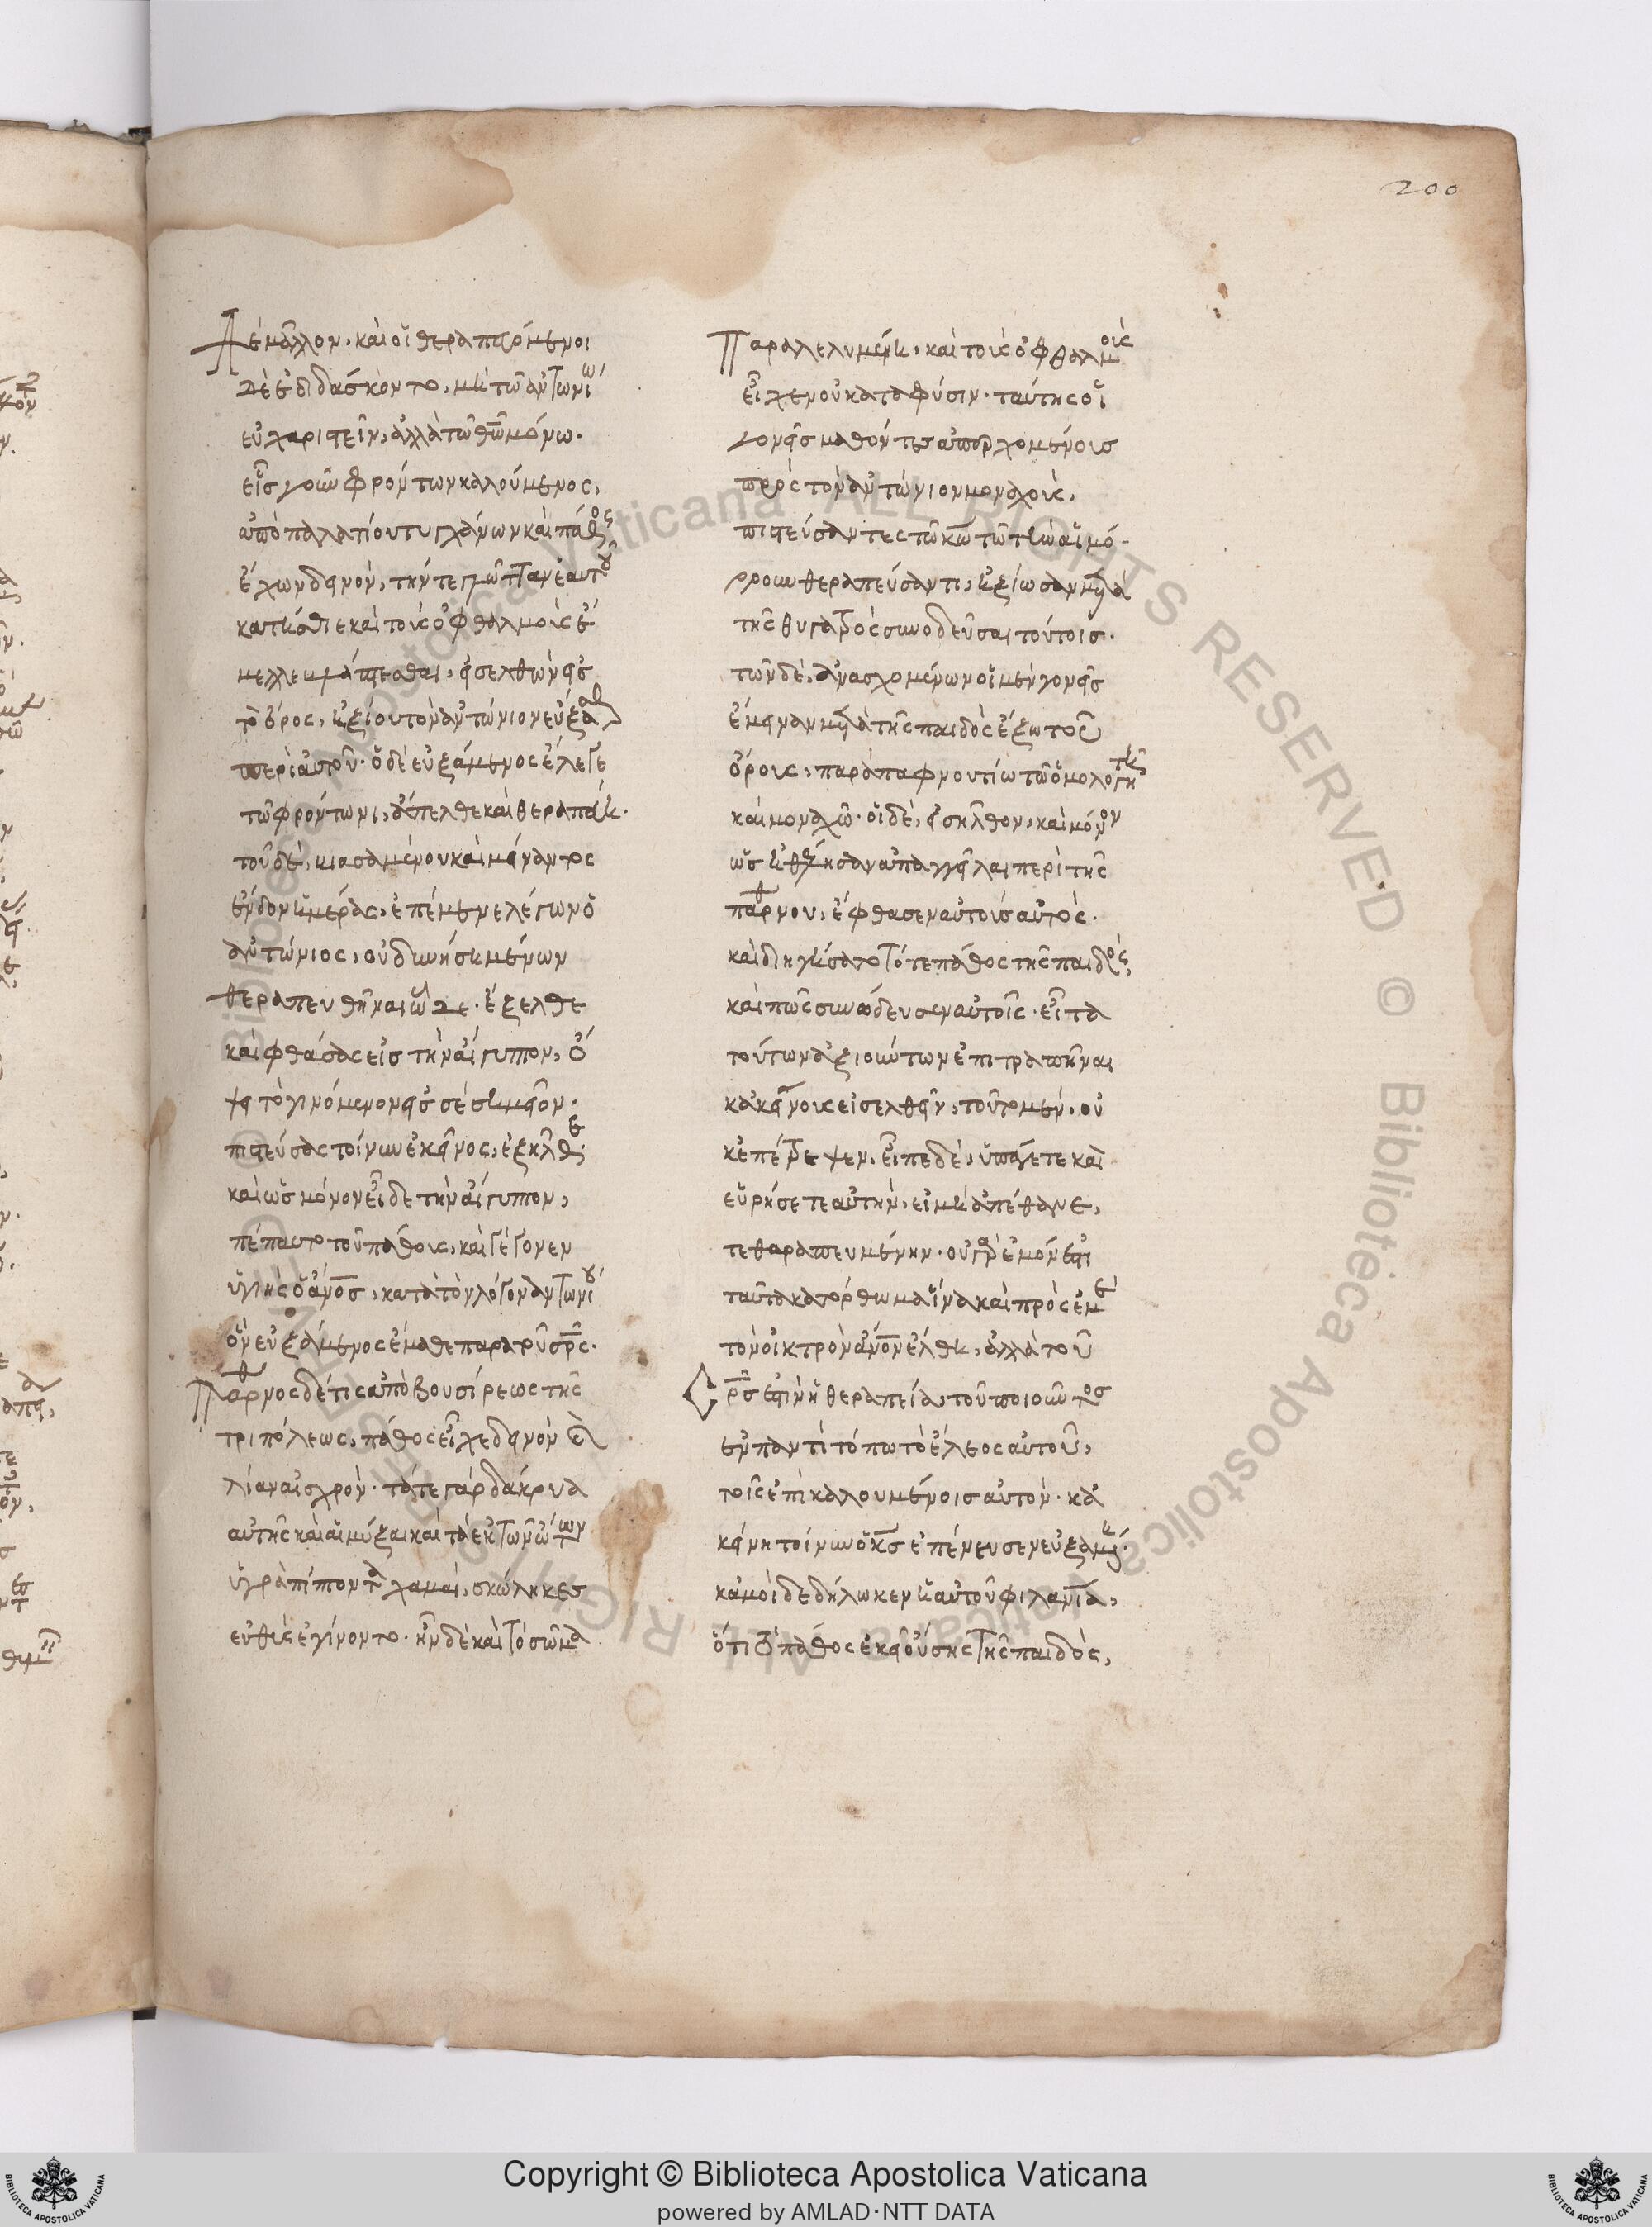 200
Δὲ μᾶλλον· καὶ οἱ θεραπευόμενοι
δὲ ἐδιδάσκοντο, μὴ τῶ ἀντωνίω
εὐχαριστεῖν, ἀλλὰ τῶ θῶ μόνω.
εἷς γοῦν φρόντων καλούμενος,
ἀπὸ παλατίου τυγχάνων καὶ πάθος
ἔχων δεινόν, τήν τε γλῶτταν ἑαυτοῦ
κατήσθιε καὶ τοὺς ὀφθαλμοὺς ἔ
μελλε βλάπτεσθαι, εἰσελθὼν εἰς
τὸ ὄρος, ἠξίου τὸν ἀντώνιον εὔξασθαι
περὶ αὐτοῦ· ὁ δὲ εὐξάμενος ἔλεγε
τῶ φρόντωνι, ἄπελθε καὶ θεραπεύη.
τοῦ δὲ, βιασαμένου καὶ μείναντος
ἔνδον ἡμέρας, ἐπέμενε λέγων ὁ
ἀντώνιος, οὐ δυνήση μένων
θεραπευθῆναι ὧδε· ἔξελθε
καὶ φθάσας εἰς τὴν αἴγυπτον, ὄ
ψει τὸ γινόμενον εἰς σὲ σημεῖον.
πιστεύσας τοίνυν ἐκεῖνος, ἐξῆλθε·
καὶ ὡς μόνον εἶδε τὴν αἴγυπτον,
πέπαυτο τοῦ πάθους, καὶ γέγονεν
ὑγιὴς ὁ ἄνος, κατὰ τὸν λόγον ἀντωνίου
ὃν εὐξάμενος ἔμαθε παρὰ τοῦ σρς.
Παρθένος δέ τις ἀπὸ βουσίρεως τῆς
τριπόλεως, πάθος εἶχε δεινὸν καὶ
λίαν αἰσχρόν· τά τε γὰρ δάκρυα
αὐτῆς καὶ αἱ μύξαι καὶ τὰ ἐκ τῶν ὤτων
ὑγρὰ πίπτοντα χαμαὶ, σκώληκες
εὐθὺς ἐγίνοντο· ἦν δὲ καὶ τὸ σῶμα
Παραλελυμένη, καὶ τοὺς ὀφθαλμοὺς
εἶχεν οὐ κατὰ φύσιν· ταύτης οἱ
γονεῖς μαθόντες ἀπερχομένους
πρὸς τὸν ἀντώνιον μοναχοὺς,
πιστεύσαντες τῶ κῶ τῶ τὴν αἱμό-
ρρουν θεραπεύσαντι, ἠξίωσαν μετὰ
τῆς θυγατρὸς συνοδεῦσαι τούτοις.
τῶν δὲ, ἀνασχομένων οἱ μὲν γονεῖς
ἔμειναν μετὰ τῆς παιδὸς ἔξω τοῦ
ὄρους, παρὰ παφνουτίω τῶ ὁμολογητῆ
καὶ μοναχῶ· οἱ δὲ, εἰσῆλθον, καὶ μόνον
ὡς ἠθέλησαν ἀπαγγεῖλαι περὶ τῆς
παρθένου, ἔφθασεν αὐτοὺς αὐτὸς.
καὶ διηγήσατο τό τε πάθος τῆς παιδὸς,
καὶ πῶς συνώδευσεν αὐτοῖς· εἶτα
τούτων ἀξιούντων ἐπιτραπῆναι
κἀκείνους εἰσελθεῖν, τοῦτο μὲν, οὐ
κ ἐπέτρεψεν, εἶπε δέ, ὑπάγετε καὶ
εὑρήσετε αὐτήν, εἰ μὴ ἀπέθανε,
τεθαραπευμένην· οὐ γὰρ ἐμόν ἐστι
ταῦτα κατόρθωμα ἵνα καὶ πρὸς ἐμὲ
τὸν οἰκτρὸν ἄνον ἔλθη, ἀλλὰ τοῦ
σρς ἐστὶν ἡ θεραπεία, τοῦ ποιοῦντος
ἐν παντὶ τόπω τὸ ἔλεος αὐτοῦ,
τοῖς ἐπικαλουμένοις αὐτόν· κἀ
κείνη τοίνυν ὁ κς ἐπένευσεν εὐξαμένη·
κἀμοὶ δεδήλωκεν ἡ αὐτοῦ φιλανία,
ὅτι τὸ πάθος ἐκεῖ οὔσης τῆς παιδὸς,
Copyright © Biblioteca Apostolica Vaticana
powered by AMLAD·NTT DATA